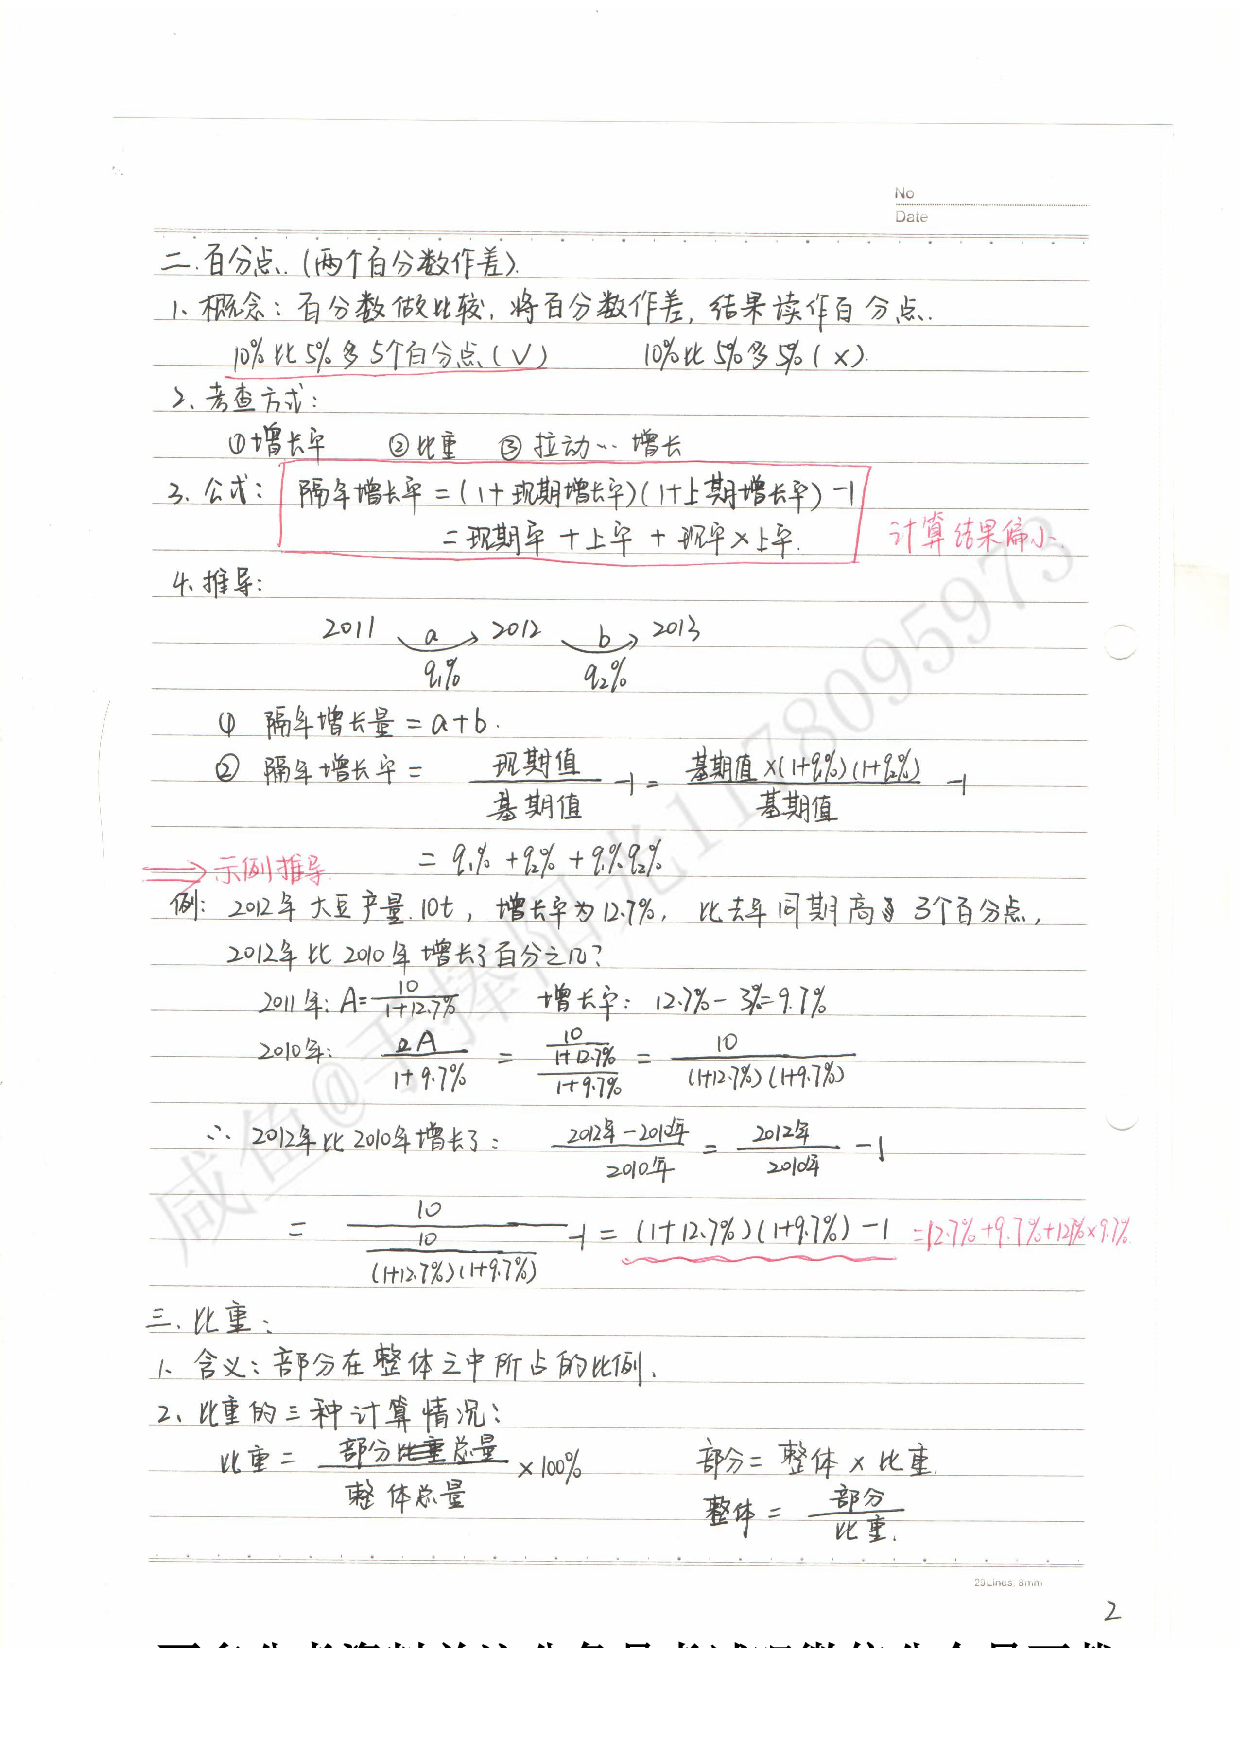 No
Date
二.百分点.(两个百分数作差).
1、概念:百分数做比较,将百分数作差,结果读作百分点.
10%比5%多5个百分点(√)  10%比5%多5%(×).
2、考查方式:
①增长率  ②比重  ③拉动…增长
3、公式: 隔年增长率=(1+现期增长率)(1+上期增长率)-1
=现期率+上率+现率×上率.  计算结果偏小.
4.推导:
2011  a  2012  b  2013
q₁%  q₂%
① 隔年增长量=a+b.
② 隔年增长率= 现期值/基期值 -1 = 基期值×(1+q₁%)(1+q₂%)/基期值 -1
= q₁%+q₂%+q₁%q₂%
⇒示例推导
例: 2012年大豆产量10t, 增长率为12.7%, 比去年同期高 3个百分点,
2012年比2010年增长了百分之几?
2011年: A= 10/1+12.7%  增长率: 12.7%-3%=9.7%
2010年: A/1+9.7% = 10/1+12.7%/1+9.7% = 10/(1+12.7%)(1+9.7%)
∴ 2012年比2010年增长了: 2012年-2010年/2010年 = 2012年/2010年 -1
= 10/10/(1+12.7%)(1+9.7%) -1 = (1+12.7%)(1+9.7%)-1 =12.7%+9.7%+12.7%×9.7%
三.比重:
1、含义:部分在整体之中所占的比例.
2、比重的三种计算情况:
比重= 部分总量/整体总量 ×100%  部分=整体×比重.
整体= 部分/比重.
20Lines. 8mm
2
咸鱼@手捧阳光1178095973